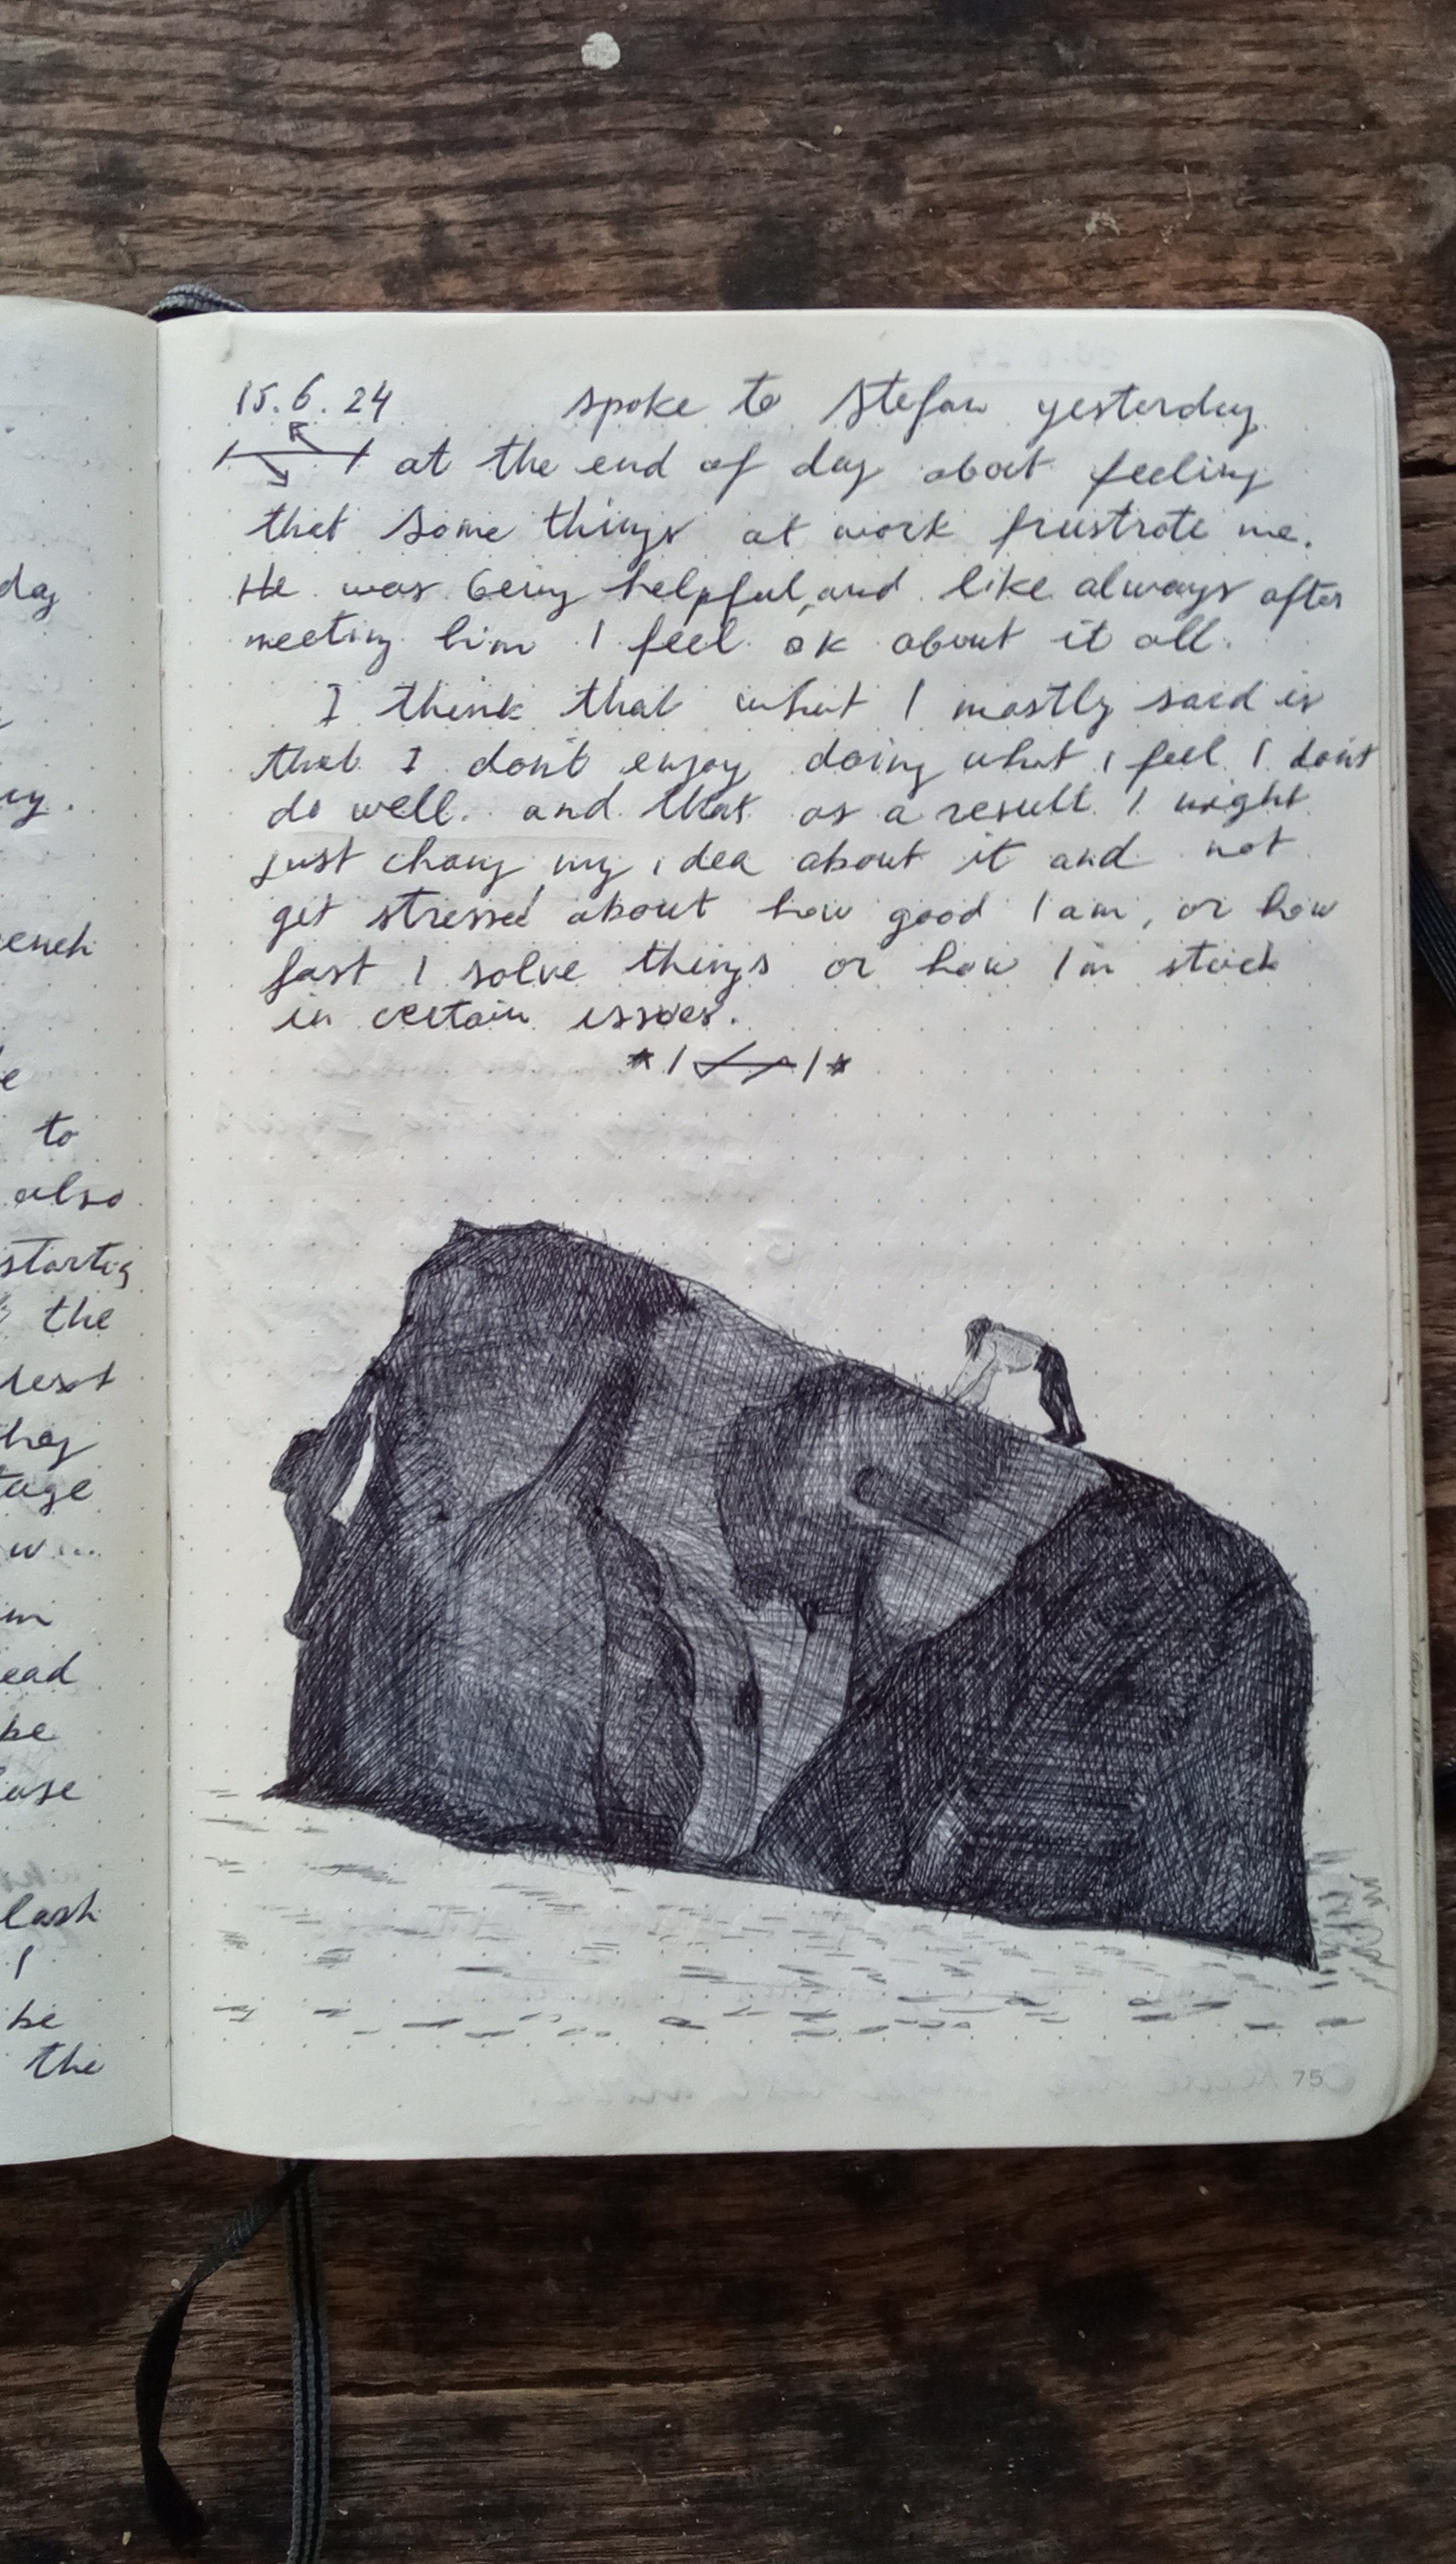 day
ey.
ench
e
to
also
starting
the
text
they
tage
w...
im
ead
be
ase
lash
I
be
the
15.6.24 spoke to Stefan yesterday
at the end of day about feeling
that some things at work frustrate me.
He was being helpful, and like always after
meeting him I feel ok about it all.
I think that what I mostly said is
that I don't enjoy doing what i feel I don't
do well. and that as a result I might
just chang my idea about it and not
get stressed about how good I am, or how
fast I solve things or how I'm stuck
in certain issues.
75